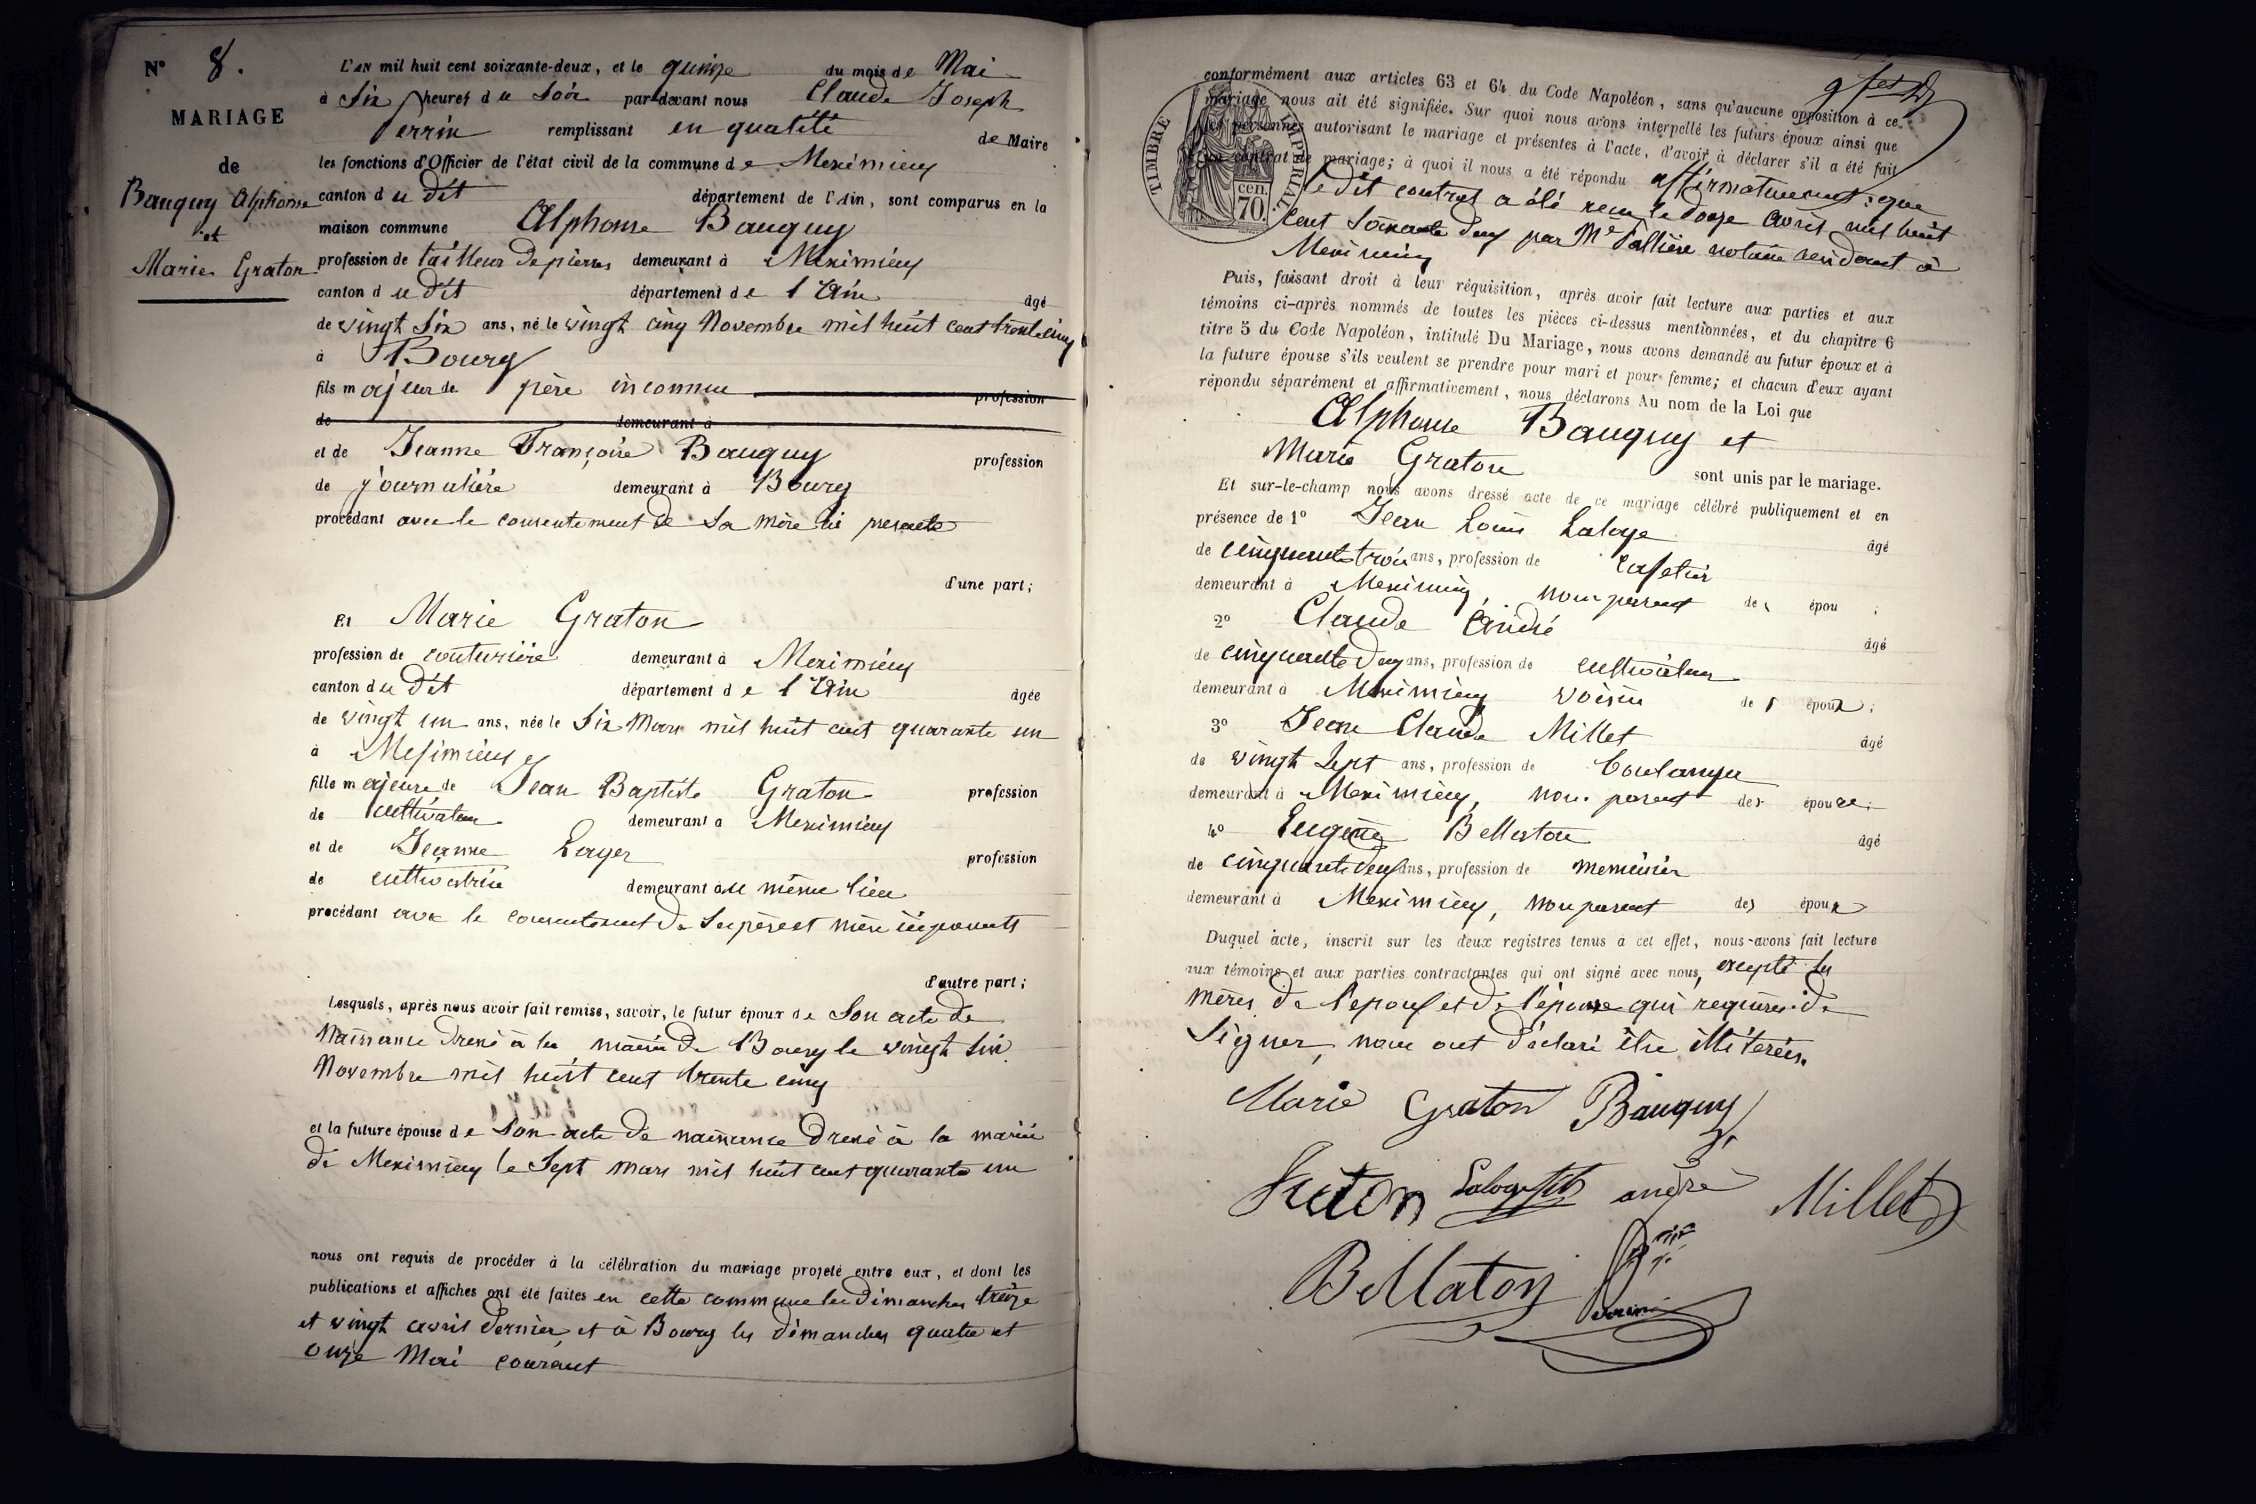 N° 8.
MARIAGE
de
Bauguy Alphonse
et
Marie Graton
L'AN mil huit cent soixante-deux, et le quinze du mois de Mai
à Six heures du Soir par-devant nous Claude Joseph
Perrin remplissant en qualité de Maire
les fonctions d'Officier de l'état civil de la commune de Meximieux
canton du dit département de l'Ain, sont comparus en la
maison commune Alphonse Bauguy
profession de tailleur de pierres demeurant à Meximieux
canton du dit département de l'Ain âgé
de vingt Six ans, né le vingt cinq Novembre mil huit cent trente cinq
à Bourg
fils majeur de père inconnu profession
de demeurant à
et de Jeanne Françoise Bauguy profession
de journalière demeurant à Bourg
procédant avec le consentement de Sa mère ici présente
d'une part;
Et Marie Graton
profession de couturière demeurant à Meximieux
canton du dit département de l'Ain âgée
de vingt un ans, née le Six Mars mil huit cent quarante un
à Meximieux
fille majeure de Jean Baptiste Graton profession
de cultivateur demeurant à Meximieux
et de Jeanne Layer profession
de cultivatrice demeurant au même lieu
procédant avec le consentement de Ses père et mère ici présents
d'autre part;
Lesquels, après nous avoir fait remise, savoir, le futur époux de Son acte de
Naissance dressé à la mairie de Bourg le vingt Six
Novembre mil huit cent trente cinq
et la future épouse de Son acte de naissance dressé à la mairie
de Meximieux le Sept mars mil huit cent quarante un
nous ont requis de procéder à la célébration du mariage projeté entre eux, et dont les
publications et affiches ont été faites en cette commune les dimanches treize
et vingt avril dernier et à Bourg les dimanches quatre et
onze Mai courant
conformément aux articles 63 et 64 du Code Napoléon, sans qu'aucune opposition à ce
mariage nous ait été signifiée. Sur quoi nous avons interpellé les futurs époux ainsi que
les personnes autorisant le mariage et présentes à l'acte, d'avoir à déclarer s'il a été fait
un contrat de mariage; à quoi il nous a été répondu affirmativement; que
le dit contrat a été reçu le douze avril mil huit
cent Soixante deux par Me Pallière notaire résidant à
Meximieux
TIMBRE IMPERIAL
70 cen.
Puis, faisant droit à leur réquisition, après avoir fait lecture aux parties et aux
témoins ci-après nommés de toutes les pièces ci-dessus mentionnées, et du chapitre 6
titre 5 du Code Napoléon, intitulé Du Mariage, nous avons demandé au futur époux et à
la future épouse s'ils veulent se prendre pour mari et pour femme; et chacun d'eux ayant
répondu séparément et affirmativement, nous déclarons Au nom de la Loi que
Alphonse Bauguy et
Marie Graton sont unis par le mariage.
Et sur-le-champ nous avons dressé acte de ce mariage célébré publiquement et en
présence de 1° Jean Louis Laloge âgé
de cinquante trois ans, profession de cafetier
demeurant à Meximieux, non parent des épou ;
2° Claude André âgé
de cinquante deux ans, profession de cultivateur
demeurant à Meximieux voisin de époux;
3° Jean Claude Millet âgé
de vingt Sept ans, profession de boulanger
demeurant à Meximieux, non parent des épouse;
4° Eugène Bellaton âgé
de cinquante deux ans, profession de menuisier
demeurant à Meximieux, non parent des époux
Duquel acte, inscrit sur les deux registres tenus à cet effet, nous avons fait lecture
aux témoins et aux parties contractantes qui ont signé avec nous, excepté les
mères de l'époux et de l'épouse qui requises de
Signer, nous ont déclaré être illitérées.
Marie Graton Bauguy
Laloge andré Millet
Bellaton Perrin